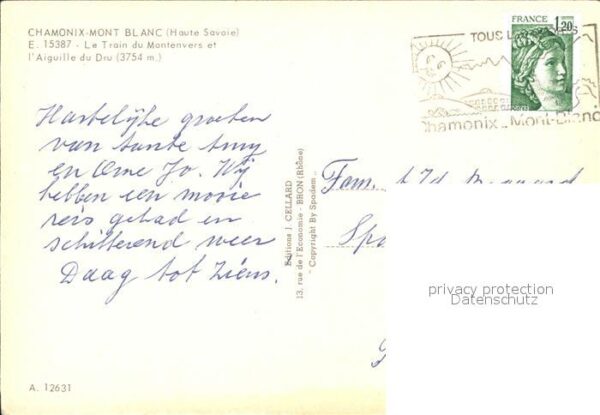 CHAMONIX-MONT BLANC (Haute Savoie)
E. 15387 - Le Train du Montenvers et
l'Aiguille du Dru (3754 m.)
FRANCE 1,20
TOUS L
Chamonix - Mont-Blanc
Hartelijke groeten
van tante Amy
en Ome Jo. Wij
hebben een mooie
reis gehad en
schitterend weer
Daag tot ziens.
Editions J. CELLARD
13, rue de l'Economie - BRON (Rhône)
" Copyright By Spadem "
Fam.
Spa
privacy protection
Datenschutz
A. 12631